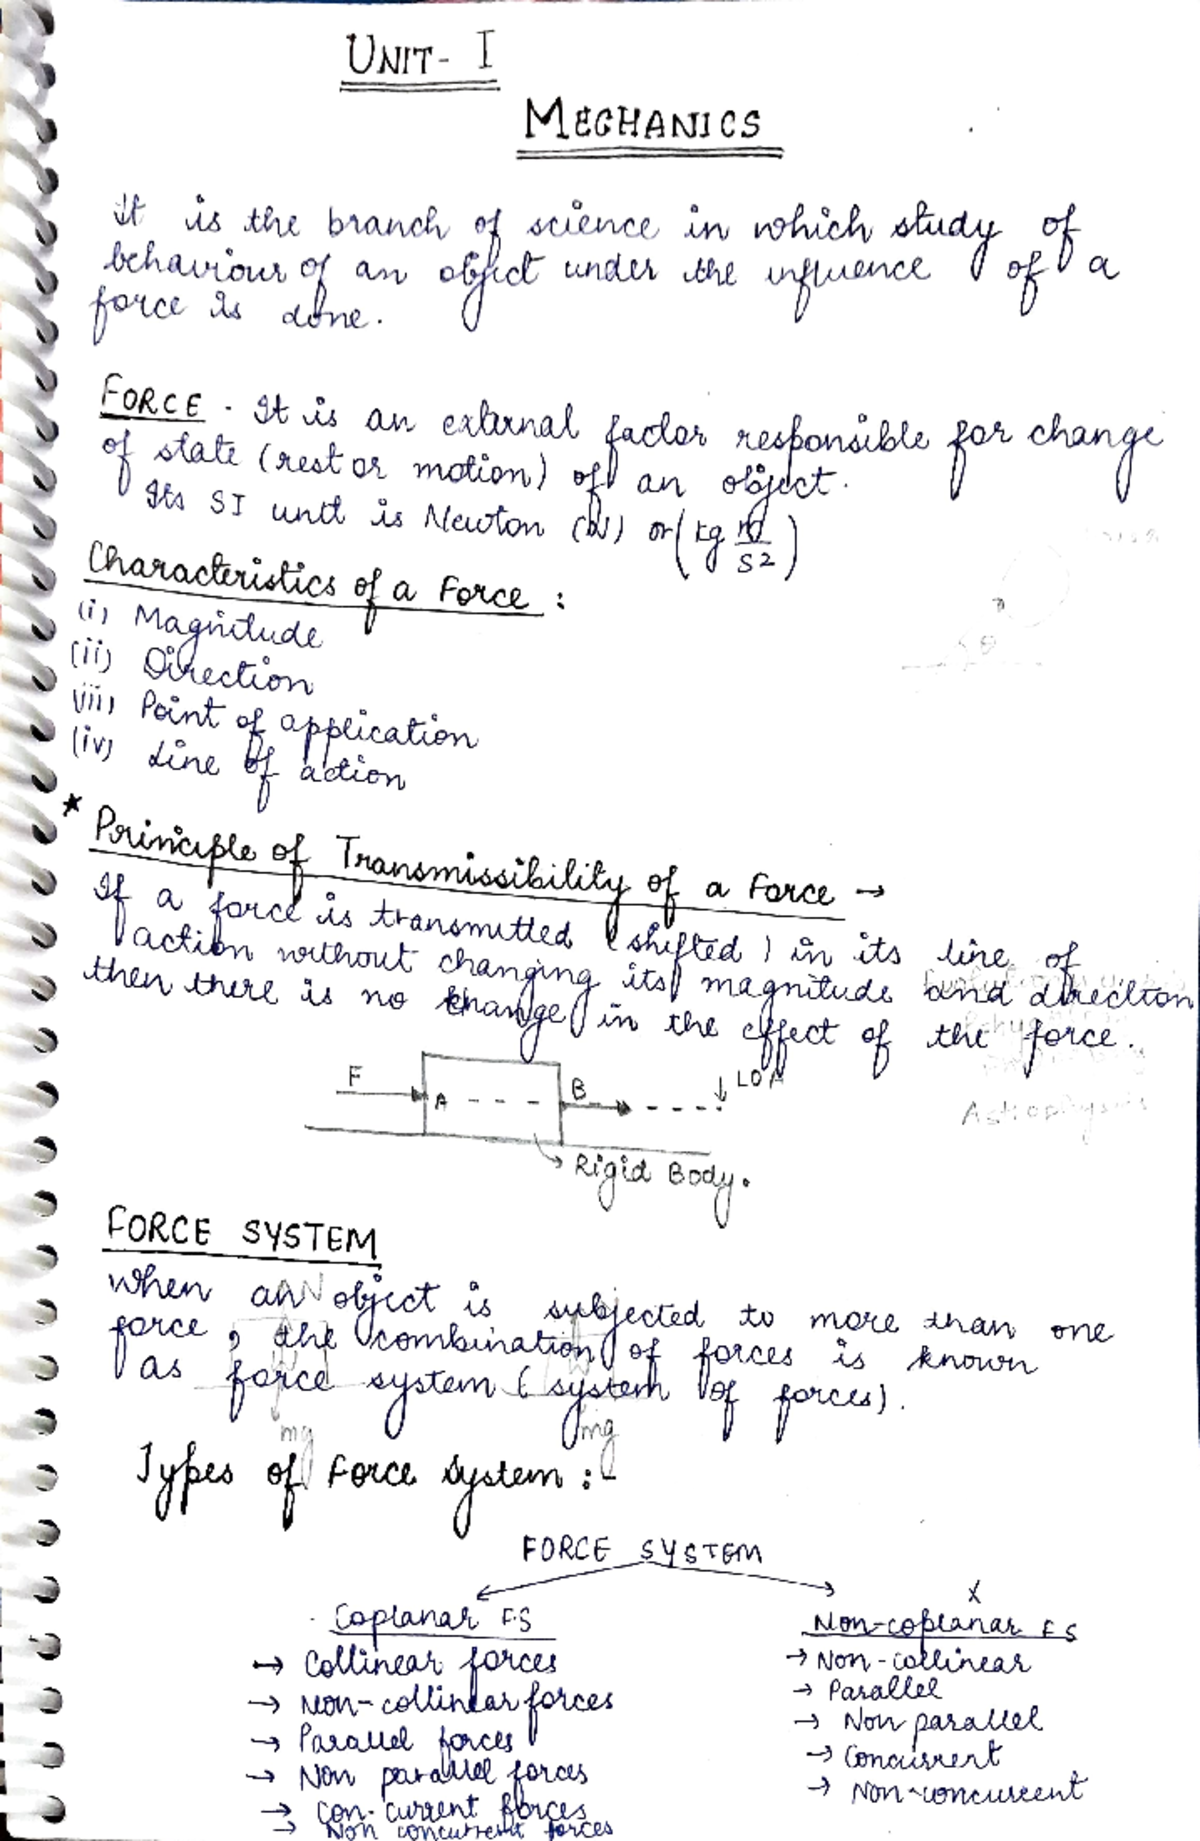 UNIT- I
MECHANICS
It is the branch of science in which study of
behaviour of an object under the influence of a
force is done.
FORCE - It is an external factor responsible for change
of state (rest or motion) of an object.
Its SI unit is Newton (N) or (kg m/s2)
Characteristics of a Force :
(i) Magnitude
(ii) Direction
(iii) Point of application
(iv) Line of action
* Principle of Transmissibility of a Force →
If a force is transmitted (shifted) in its line of
action without changing its magnitude and direction
then there is no change in the effect of the force.
F A - - - - B - - - - ↓ LOA
→ Rigid Body.
FORCE SYSTEM
When an object is subjected to more than one
force, the combination of forces is known
as force system (system of forces).
mg mg
Types of Force System :-
FORCE SYSTEM
x
Coplanar F.S
→ Collinear forces
→ Non-collinear forces
→ Parallel forces
→ Non parallel forces
→ Con-current forces
→ Non concurrent forces
Non-coplanar F S
→ Non-collinear
→ Parallel
→ Non parallel
→ Concurrent
→ Non-concurrent